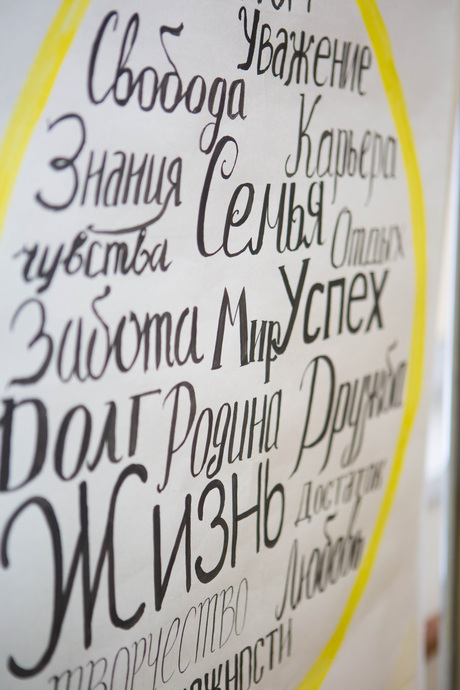 Уважение
Свобода
Карьера
Знания
Семья
Отдых
чувства
Успех
Забота
Мир
Дружба
Долг
Родина
Достаток
Жизнь
Любовь
творчество